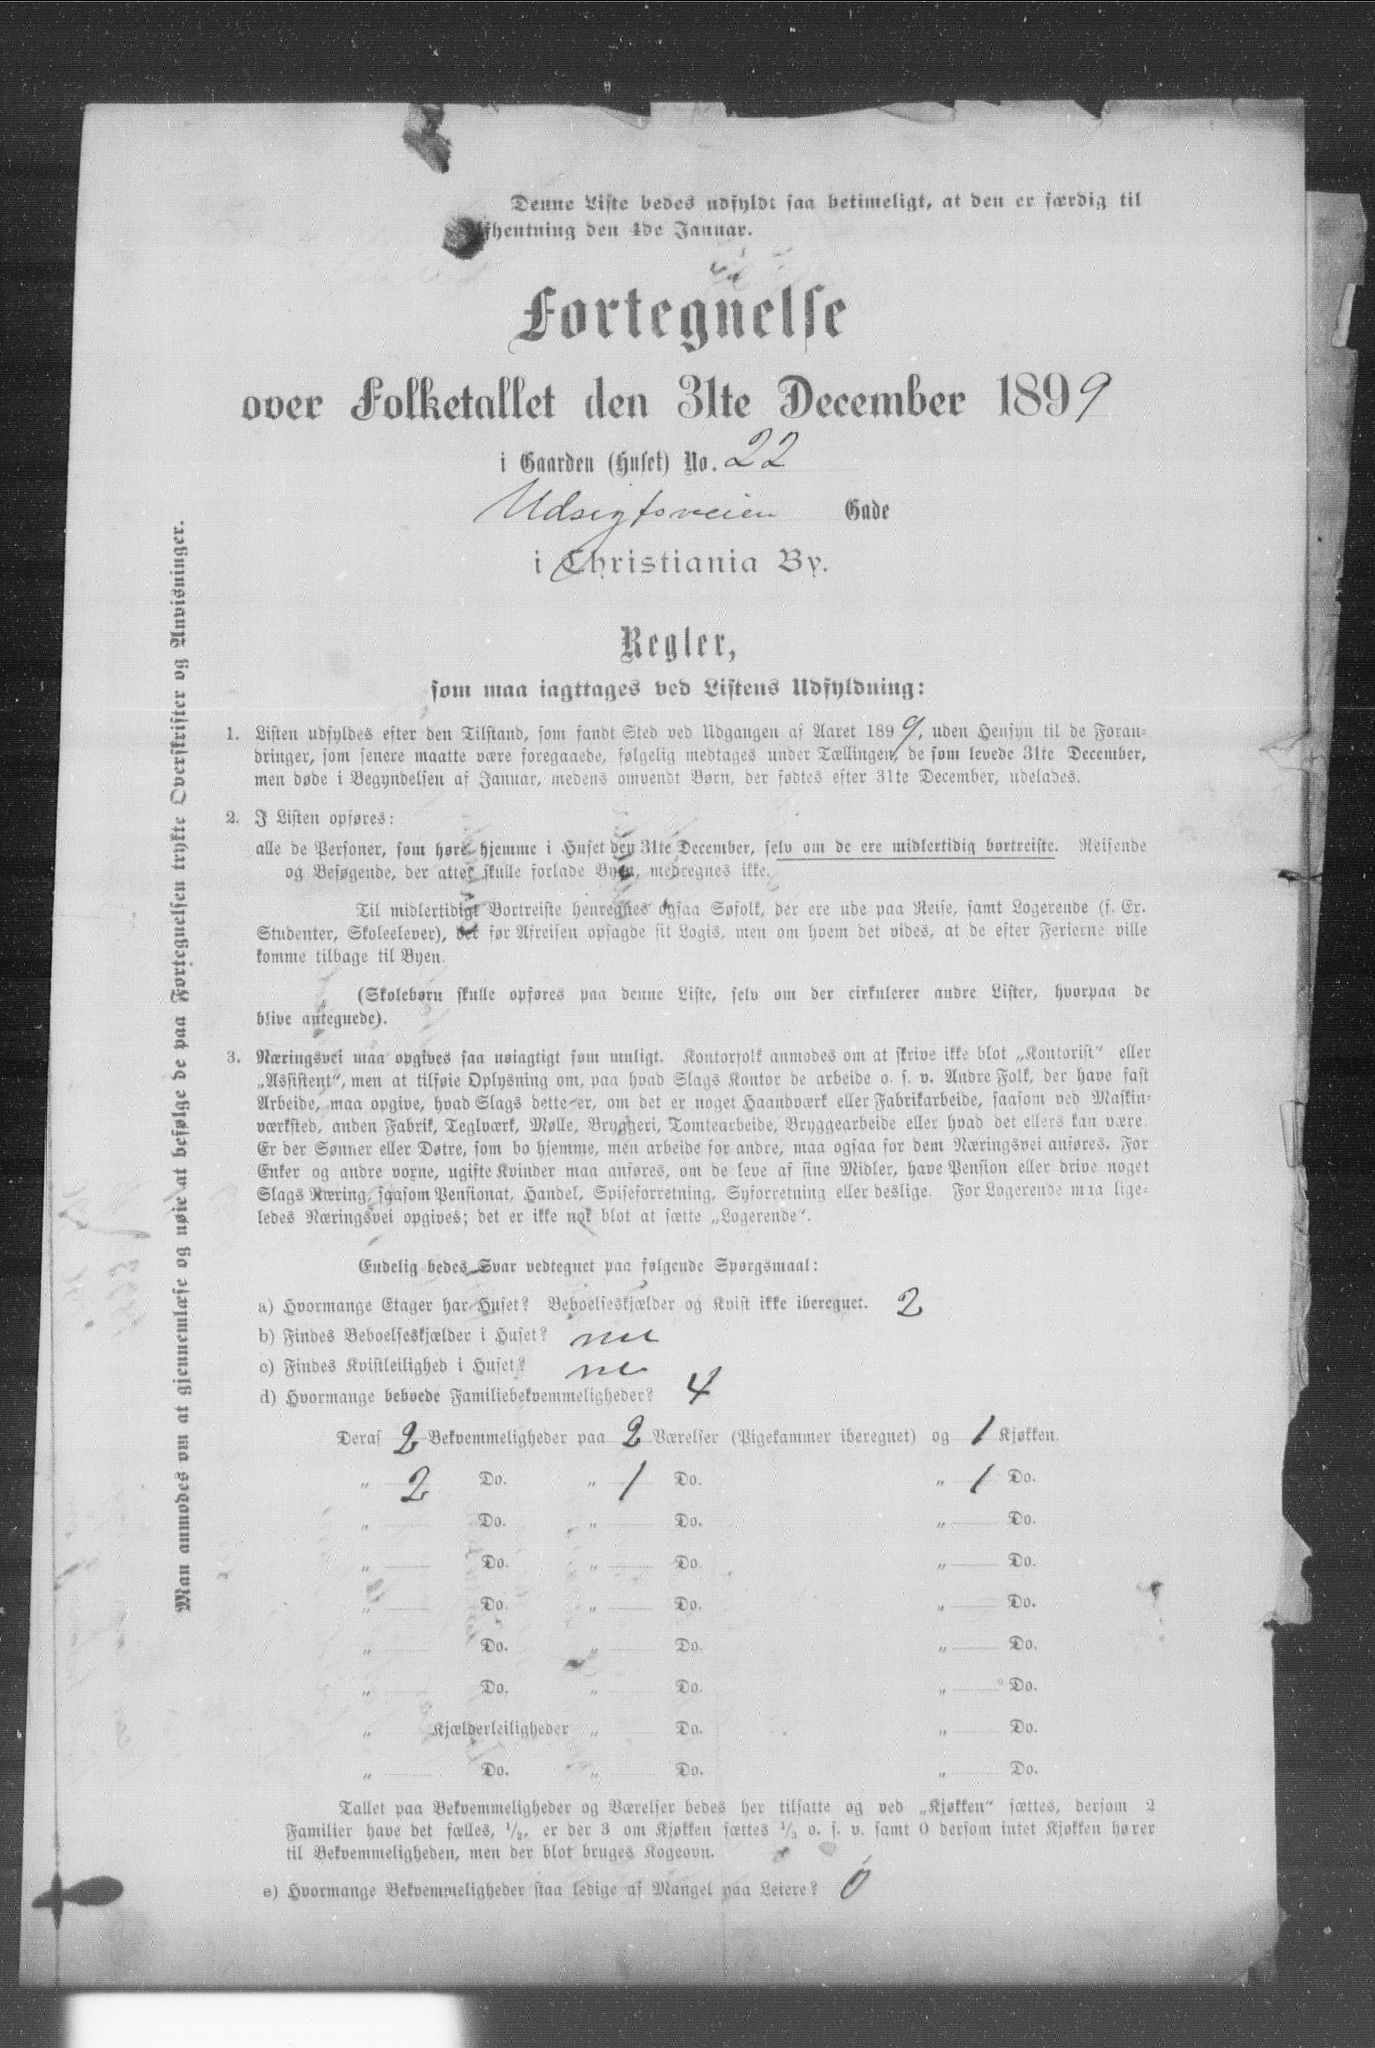 Denne Liste bedes udfyldt saa betimeligt, at den er færdig til
Afhentning den 4de Januar.
Fortegnelse
over Folketallet den 31te December 1899
i Gaarden (Huset) No. 22
Udsigtsveien Gade
i Christiania By.
Regler,
som maa iagttages ved Listens Udfyldning:
1. Listen udfyldes efter den Tilstand, som fandt Sted ved Udgangen af Aaret 1899, uden Hensyn til de Foran-
dringer, som senere maatte være foregaaede, følgelig medtages under Tællingen, de som levede 31te December,
men døde i Begyndelsen af Januar, medens omvendt Børn, der fødtes efter 31te December, udelades.
2. I Listen opføres:
alle de Personer, som høre hjemme i Huset den 31te December, selv om de ere midlertidig bortreiste. Reisende
og Besøgende, der atter skulle forlade Byen, medregnes ikke.
Til midlertidigt Bortreiste henregnes ogsaa Søfolk, der ere ude paa Reise, samt Logerende (f. Ex.
Studenter, Skoleelever), der før Afreisen opsagde sit Logis, men om hvem det vides, at de efter Ferierne ville
komme tilbage til Byen.
(Skolebørn skulle opføres paa denne Liste, selv om der cirkulerer andre Lister, hvorpaa de
blive antegnede).
3. Næringsvei maa opgives saa nøiagtigt som muligt. Kontorfolk anmodes om at skrive ikke blot „Kontorist“ eller
„Assistent“, men at tilføie Oplysning om, paa hvad Slags Kontor de arbeide o. s. v. Andre Folk, der have fast
Arbeide, maa opgive, hvad Slags dette er, om det er noget Haandværk eller Fabrikarbeide, saasom ved Maskin-
værksted, anden Fabrik, Teglværk, Mølle, Bryggeri, Tomtearbeide, Bryggearbeide eller hvad det ellers kan være.
Er der Sønner eller Døtre, som bo hjemme, men arbeide for andre, maa ogsaa for dem Næringsvei anføres. For
Enker og andre voxne, ugifte Kvinder maa anføres, om de leve af sine Midler, have Pension eller drive noget
Slags Næring, saasom Pensionat, Handel, Spiseforretning, Syforretning eller deslige. For Logerende maa lige-
ledes Næringsvei opgives; det er ikke nok blot at sætte „Logerende“.
Endelig bedes Svar vedtegnet paa følgende Spørgsmaal:
a) Hvormange Etager har Huset? Beboelseskjælder og Kvist ikke iberegnet. 2
b) Findes Beboelseskjælder i Huset? nei
c) Findes Kvistleilighed i Huset? nei
d) Hvormange beboede Familiebekvemmeligheder? 4
Deraf 2 Bekvemmeligheder paa 2 Værelser (Pigekammer iberegnet) og 1 Kjøkken.
„ 2 Do. „ 1 Do. „ 1 Do.
„ Do. „ Do. „ Do.
„ Do. „ Do. „ Do.
„ Do. „ Do. „ Do.
„ Do. „ Do. „ Do.
„ Do. „ Do. „ Do.
„ Kjælderleiligheder „ Do. „ Do.
„ Do. „ Do. „ Do.
Tallet paa Bekvemmeligheder og Værelser bedes her tilsatte og ved „Kjøkken“ sættes, dersom 2
Familier have det fælles, 1/2, er der 3 om Kjøkken sættes 1/3 o. s. v. samt 0 dersom intet Kjøkken hører
til Bekvemmeligheden, men der blot bruges Kogeovn.
e) Hvormange Bekvemmeligheder staa ledige af Mangel paa Leiere? 0
Man anmodes om at gjennemlæse og nøie at befølge de paa Fortegnelsen trykte Overskrifter og Anvisninger.